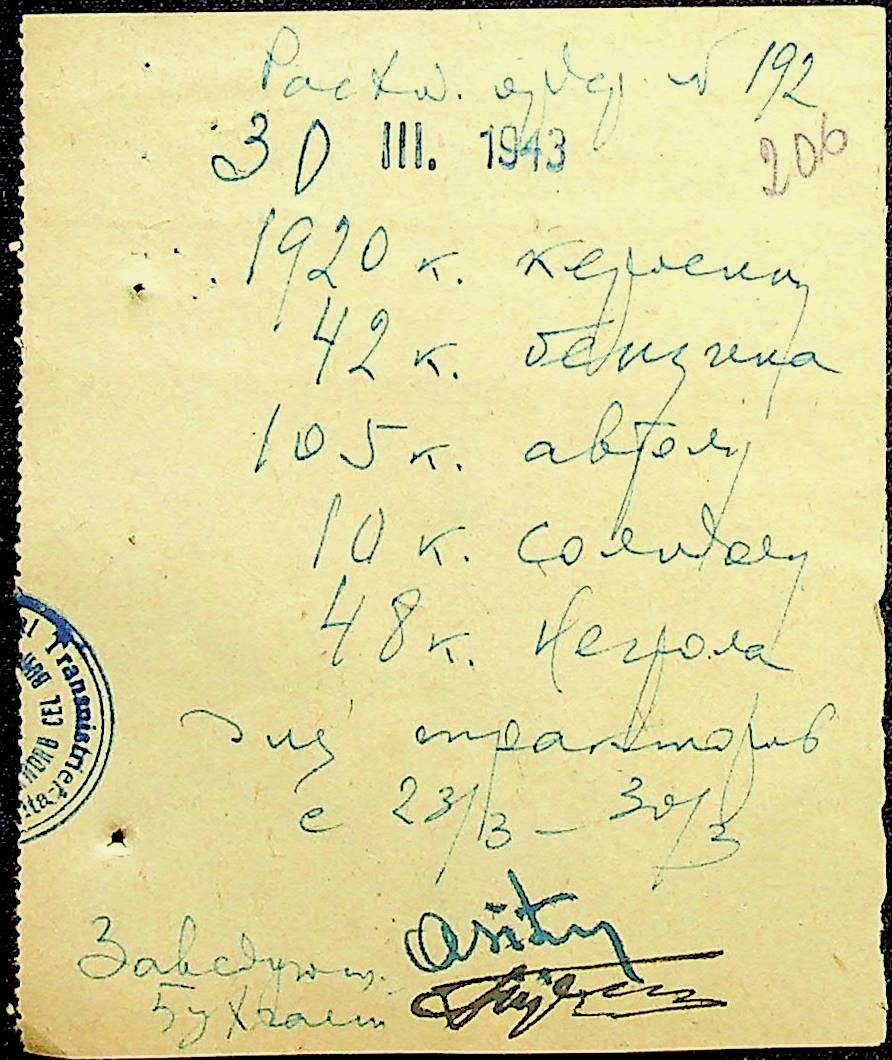 Расход. ордер № 192
30 III. 1943
206
1920 к. керосину
42 к. бензина
105 к. автолу
10 к. солидолу
48 к. Негрола
для тракторов
с 23/3 – 30/3
Transnistriei
CEL BUN
Заведующ.
Бухгалт.